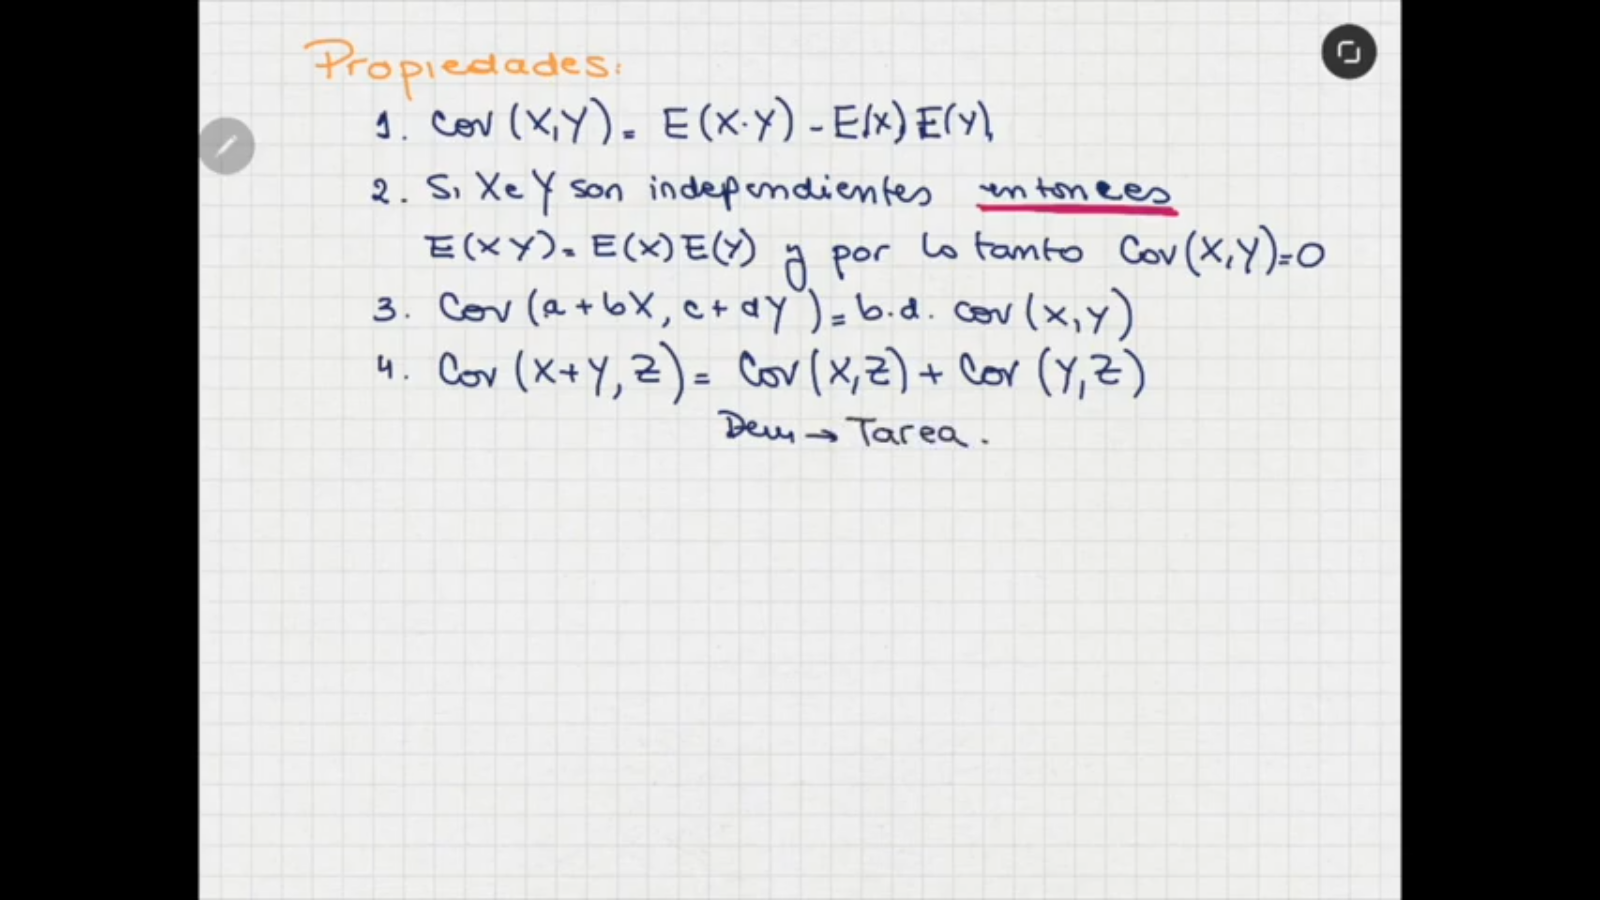 Propiedades:
1. Cov (X,Y) = E(X·Y) - E(X) E(Y)
2. Si X e Y son independientes entonces
E(XY) = E(X) E(Y) y por lo tanto Cov(X,Y)=0
3. Cov (a + bX, c + dY) = b.d. cov (X,Y)
4. Cov (X+Y, Z) = Cov (X,Z) + Cov (Y,Z)
Dem → Tarea.